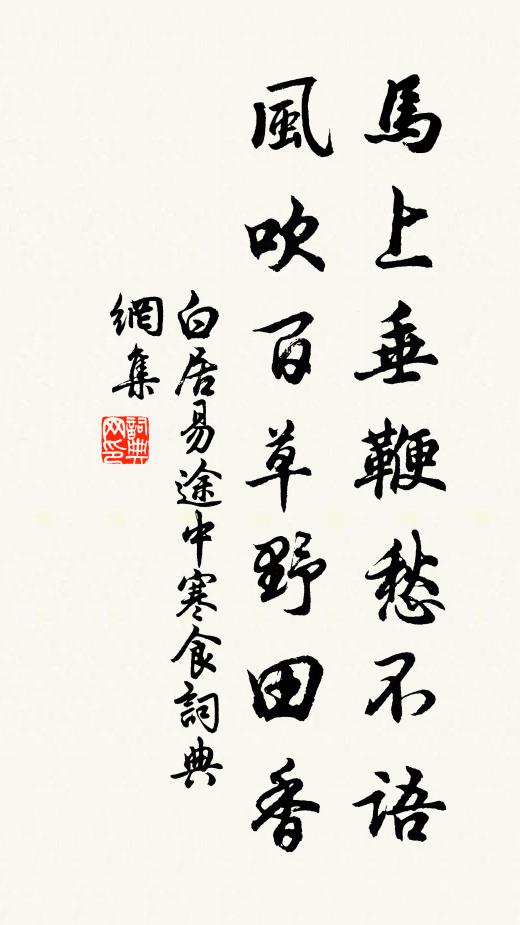 馬上垂鞭愁不語
風吹百草野田香
白居易途中寒食詞典
網集
詞典网印